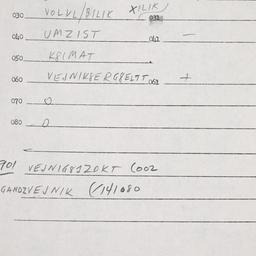 030 VOLVL/BILIK XILIK) 032
040 UMZIST 042 —
050 K8IMAT
060 VEJNIK8ERG8ELTT 062 +
070 O
080 D
901 VEJNIG8SZOKT (002
GANDZVEJNIK (/141080